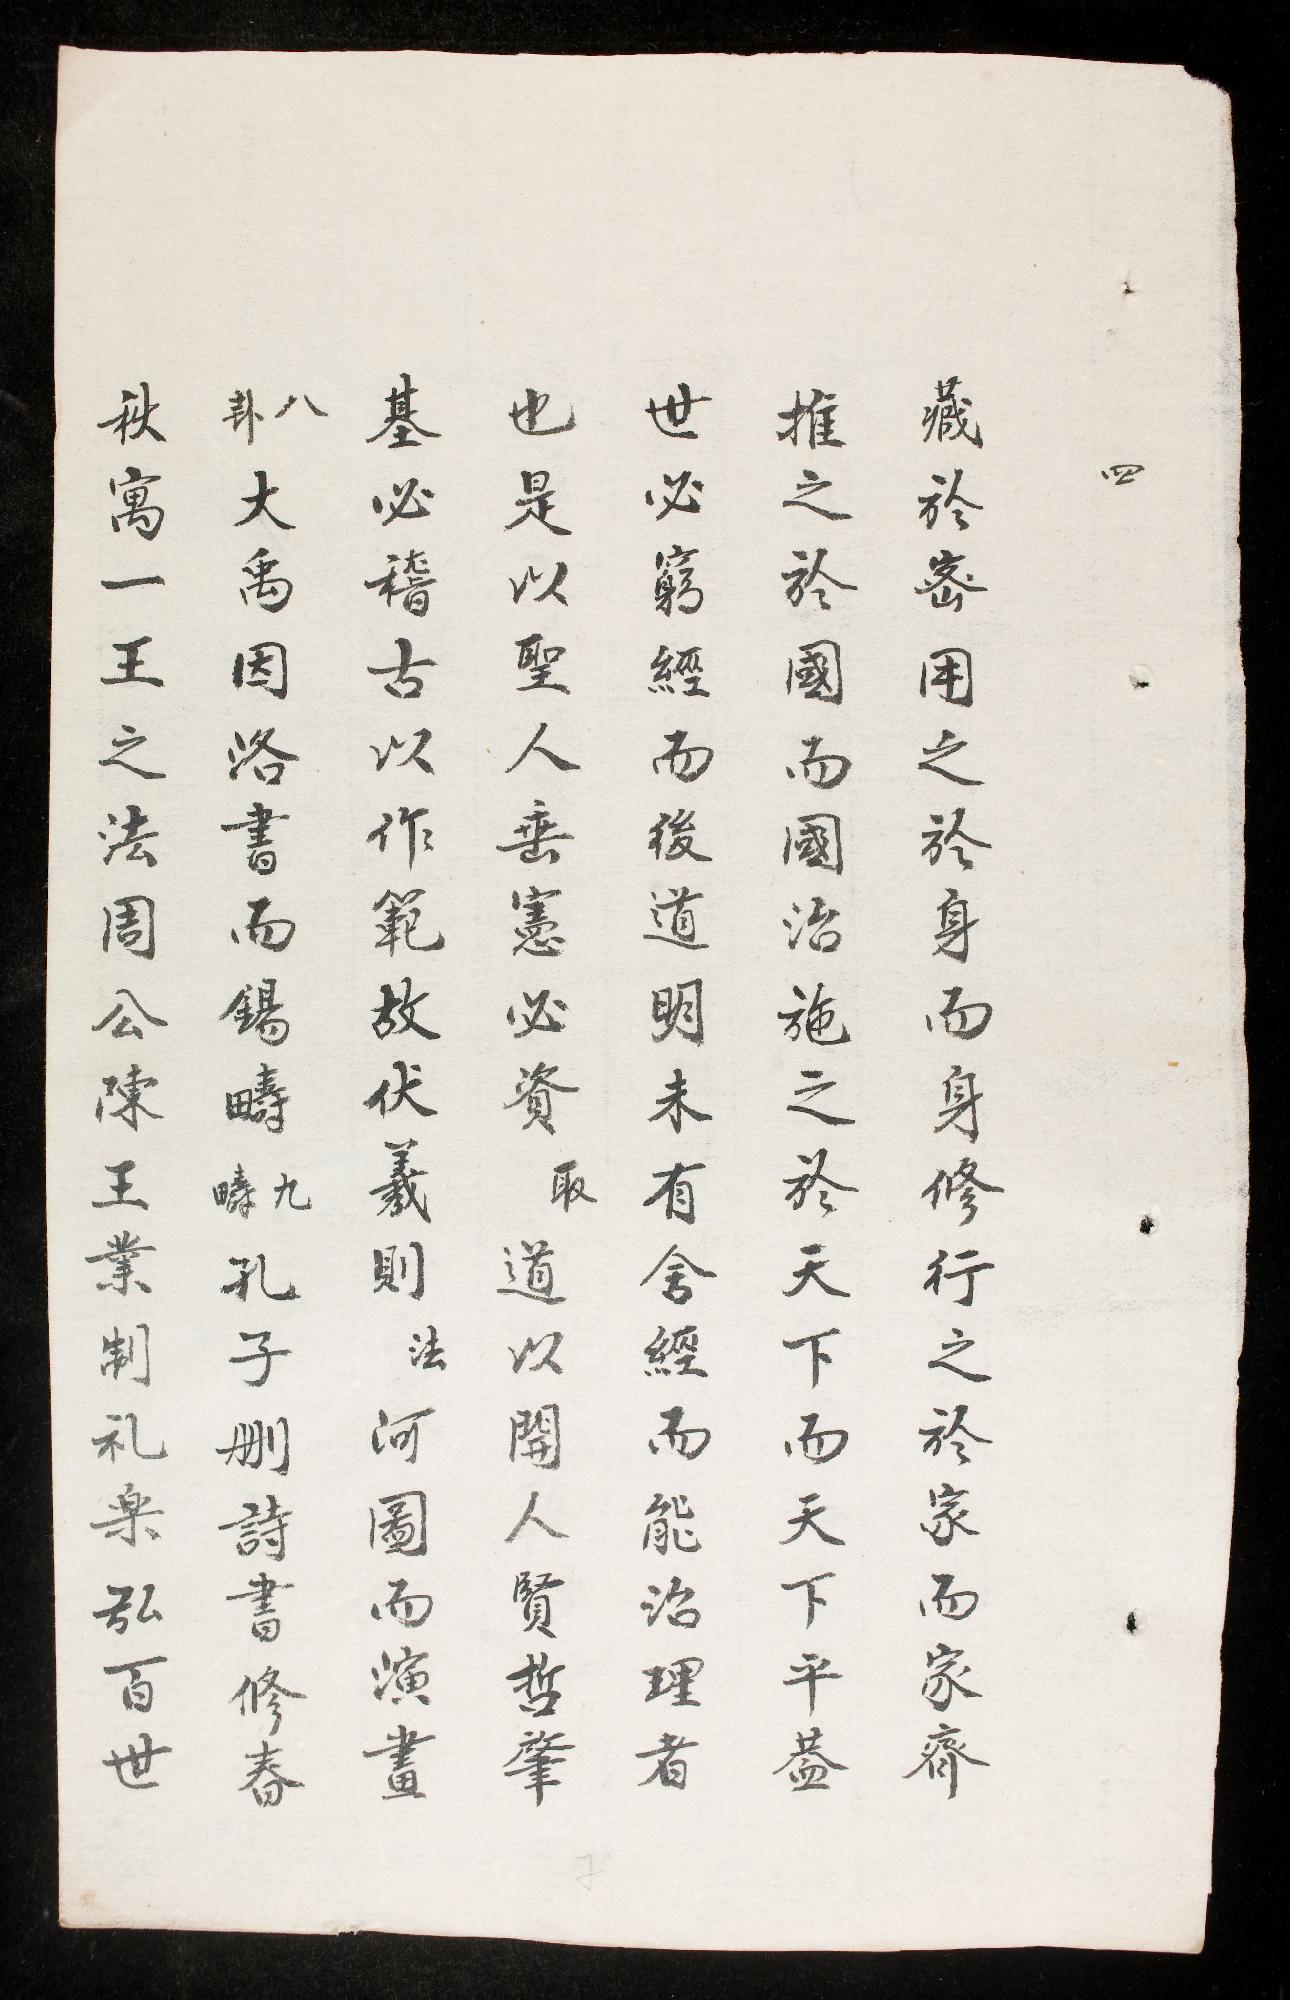 四
藏於密用之於身而身修行之於家而家齊
推之於國而國治施之於天下而天下平蓋
世必窮經而後道明未有舍經而能治理者
也是以聖人垂憲必資取道以開人賢哲肇
基必稽古以作範故伏羲則法河圖而演畫
八卦大禹因洛書而錫疇九疇孔子刪詩書修春
秋寓一王之法周公陳王業制礼楽弘百世